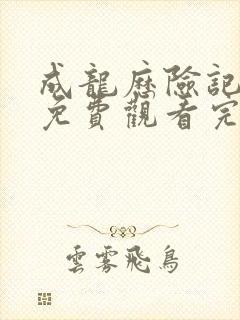 成龍歷險記
免費觀看完
雲雾飛鳥